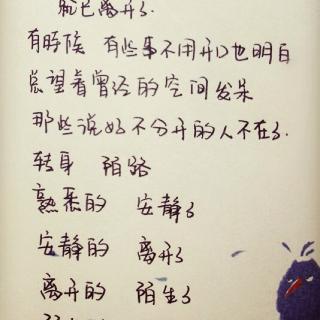 就已离开了.
有时候 有些事不用开口也明白
总望着曾经的空间发呆
那些说好不分开的人不在了.
转身 陌路
熟悉的 安静了
安静的 离开了
离开的 陌生了